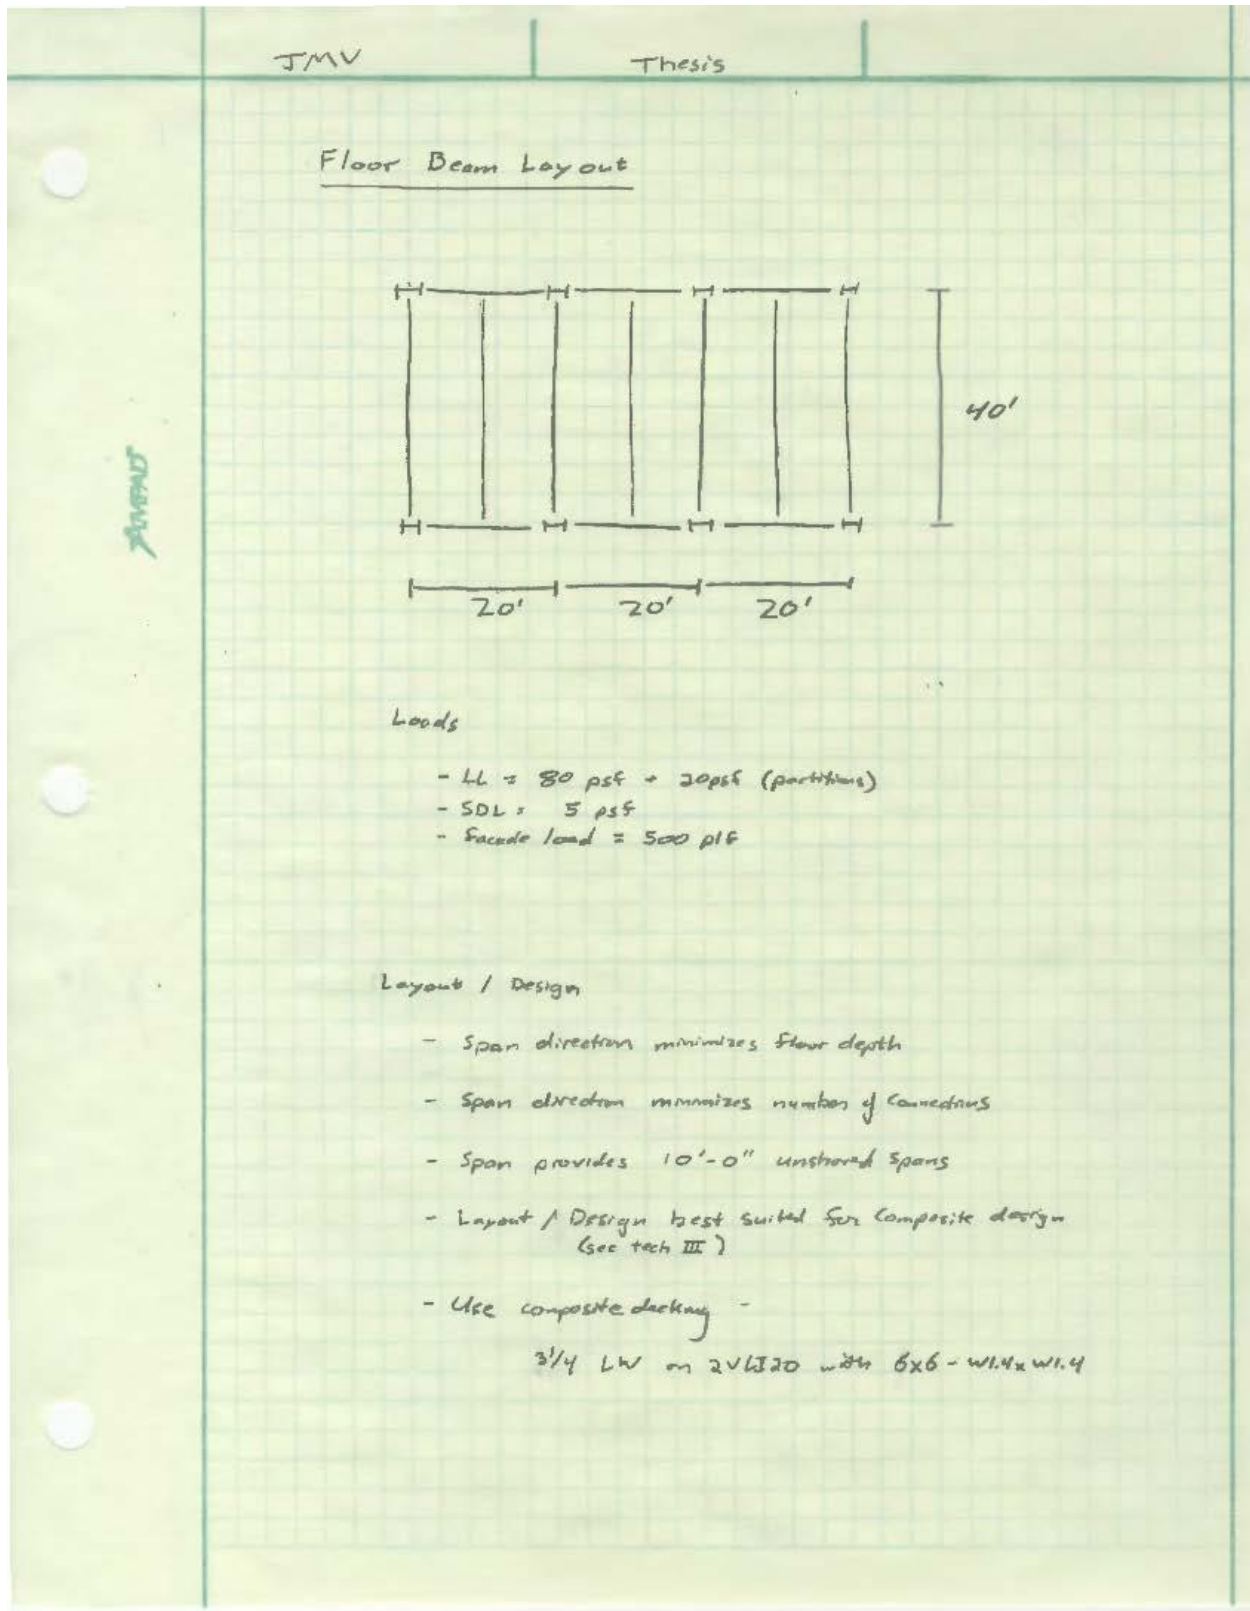 JMV Thesis
Floor Beam Layout
40'
20' 20' 20'
AMPAD
Loads
- LL = 80 psf + 20psf (partitions)
- SDL = 5 psf
- facade load = 500 plf
Layout / Design
- Span direction minimizes floor depth
- Span direction minimizes number of Connections
- Span provides 10'-0" unshored spans
- Layout / Design best suited for Composite design
(see tech III)
- Use composite decking -
3 1/4 LW on 2VLI20 with 6x6 - W1.4xW1.4